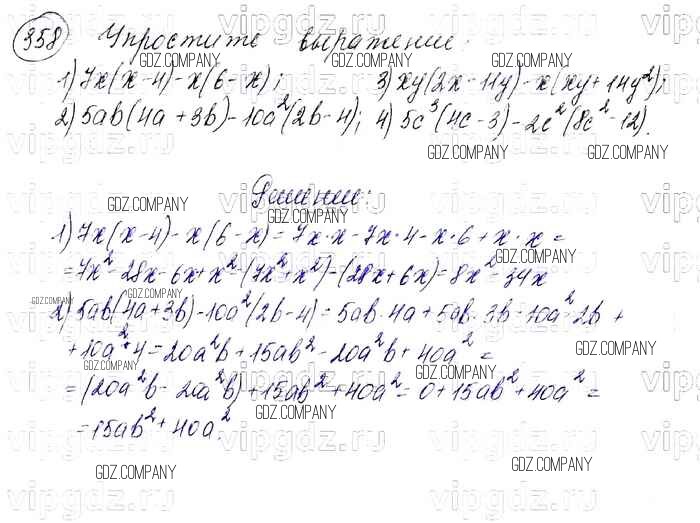 358 Упростите выражение:
1) 7x(x-4)-x(6-x); 3) xy(2x-11y)-x(xy+14y²);
2) 5ab(4a+3b)-10a²(2b-4); 4) 5c³(4c-3)-2c²(8c²-12).
Решение:
1) 7x(x-4)-x(6-x)=7x·x-7x·4-x·6+x·x=
=7x²-28x-6x+x²-(7x²+x²)-(28x+6x)=8x²-34x
2) 5ab(4a+3b)-10a²(2b-4)=5ab·4a+5ab·3b-10a²·2b+
+10a²·4=20a²b+15ab²-20a²b+40a²=
=(20a²b-20a²b)+15ab²+40a²=0+15ab²+40a²=
=15ab²+40a².
GDZ.COMPANY
vipgdz.ru